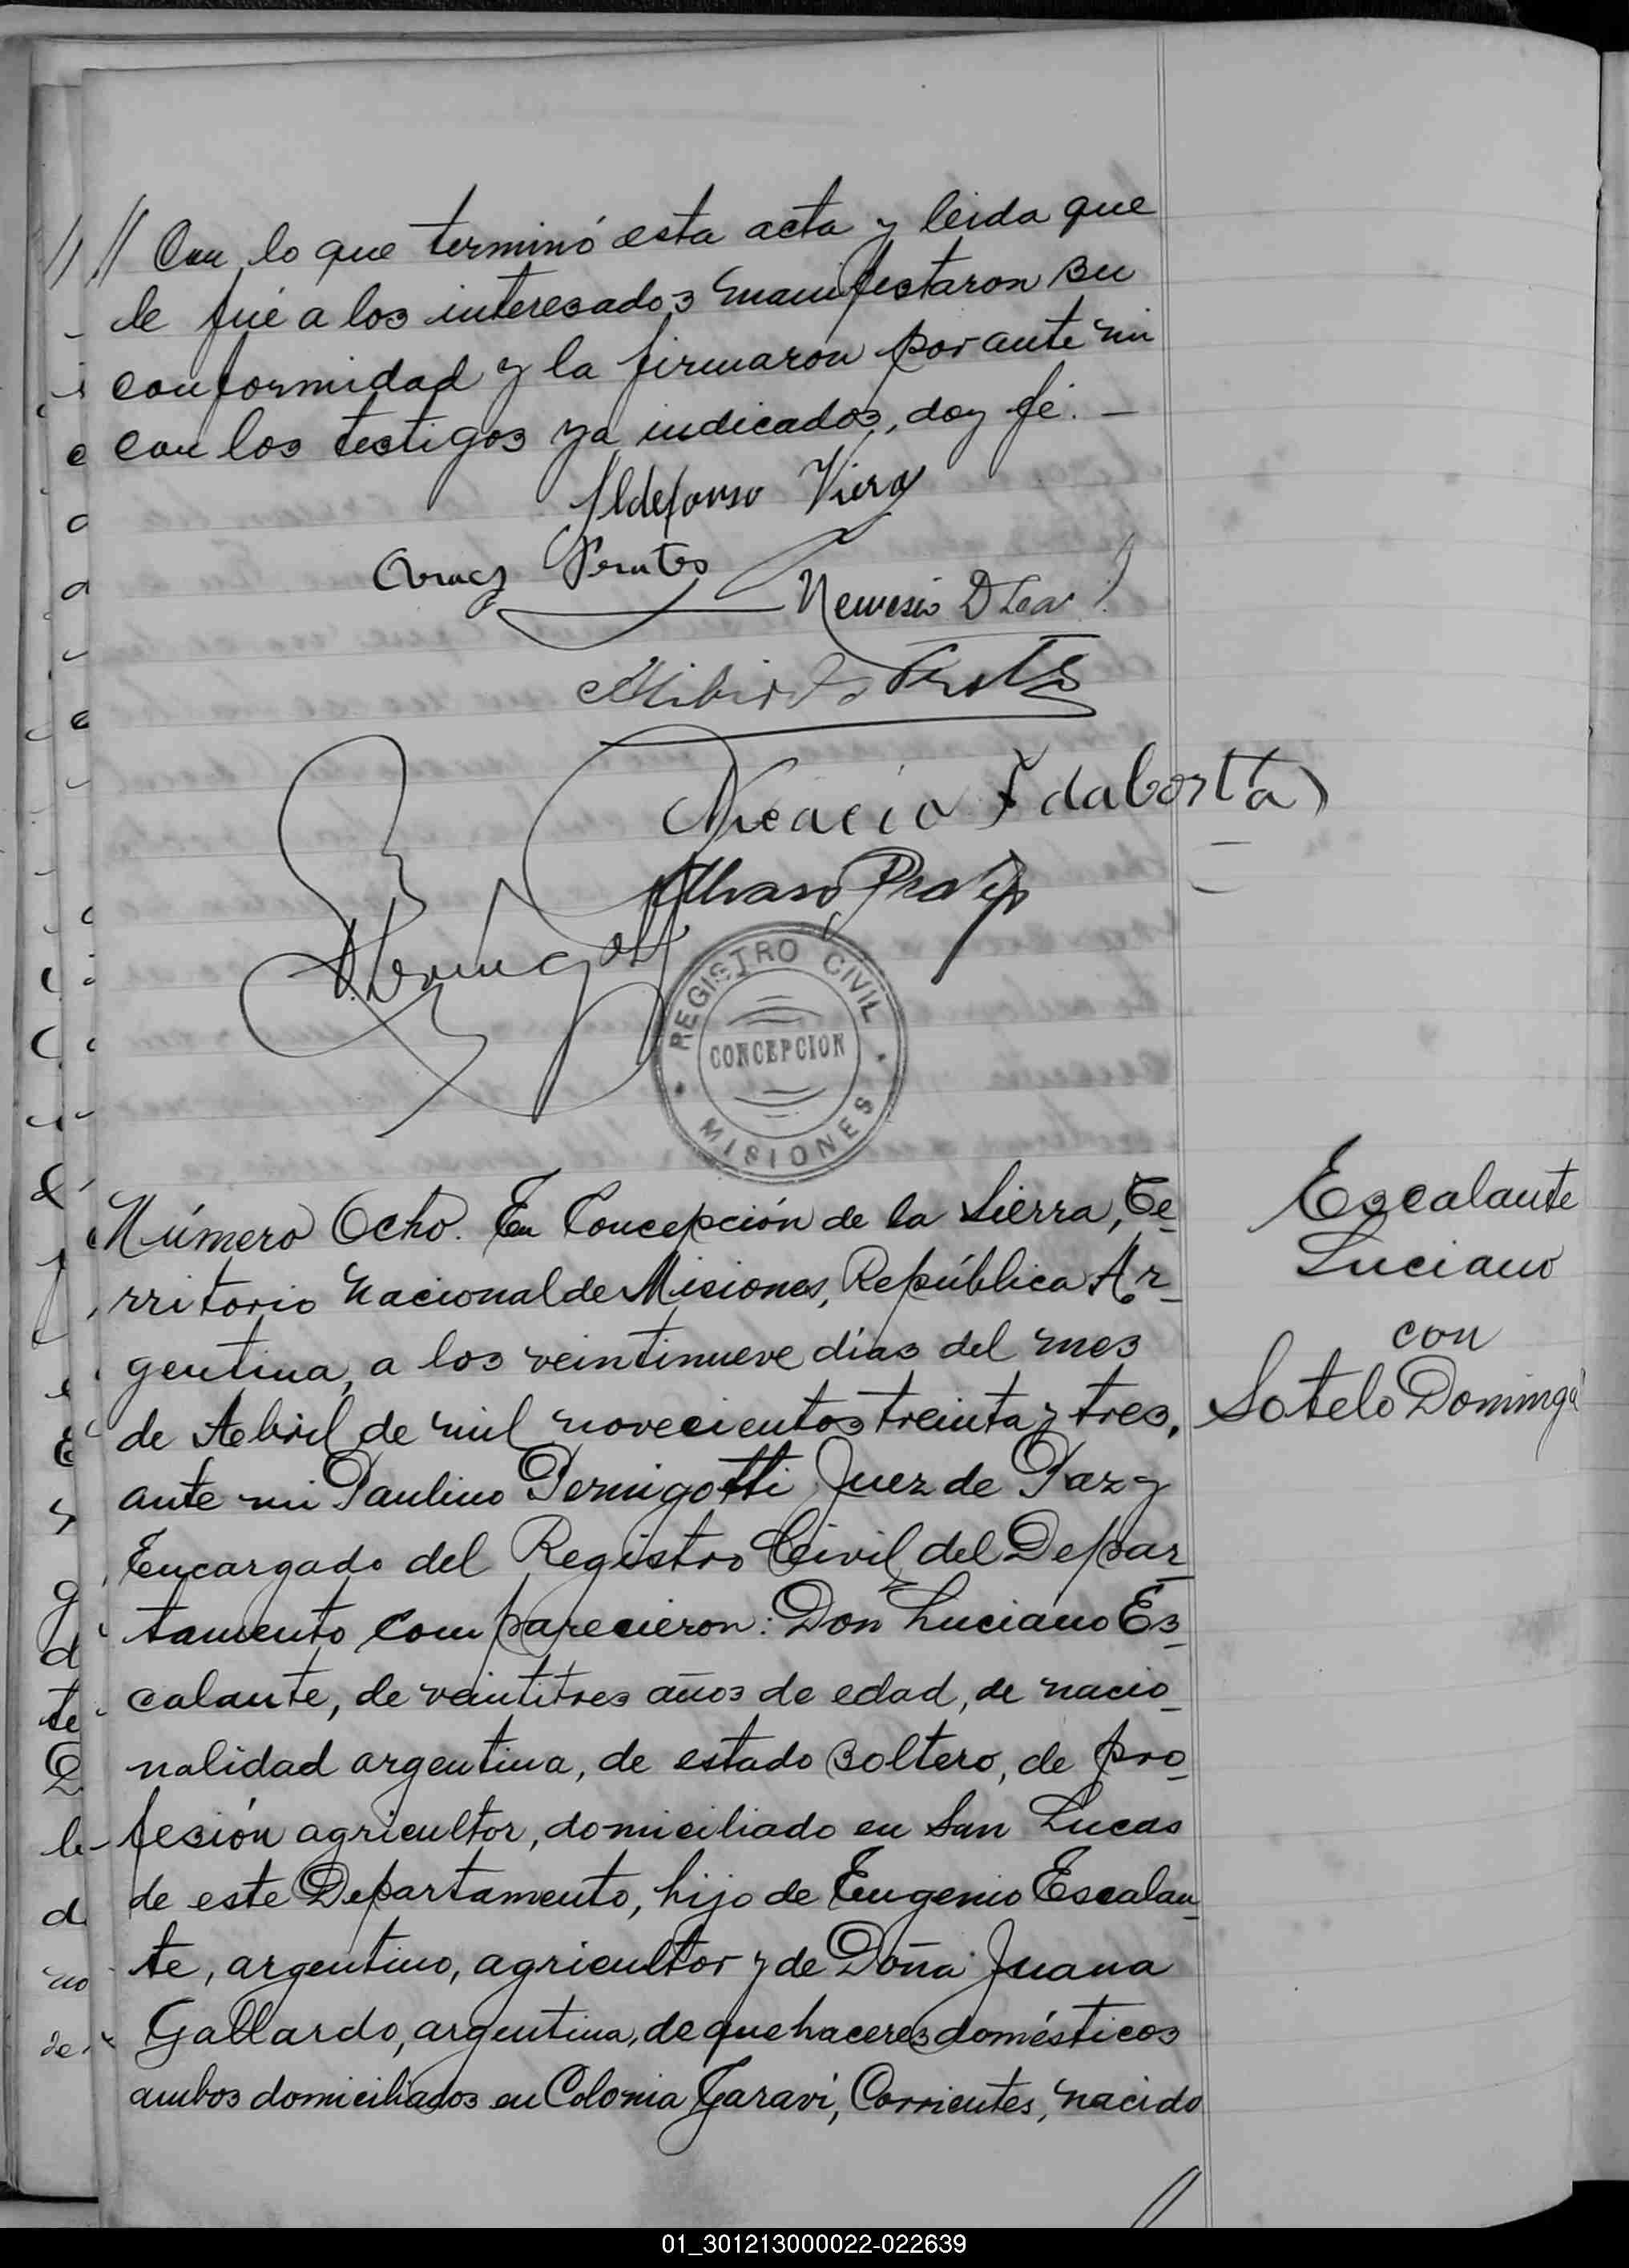 // Con lo que terminó esta acta y leida que
le fué a los interesados manifestaron su
conformidad y la firmaron por ante mi
con los testigos ya indicados, doy fé. —
Ildefonso Viera
Nemesio
Alvaro
REGISTRO CIVIL
CONCEPCION
MISIONES
Número Ocho. En Concepción de la Sierra, Te-
rritorio Nacional de Misiones, República Ar-
gentina, a los veintinueve días del mes
de Abril de mil novecientos treinta y tres,
ante mi Paulino Pernigotti Juez de Paz y
Encargado del Registro Civil del Depar-
tamento comparecieron: Don Luciano Es-
calante, de veintitres años de edad, de nacio-
nalidad argentina, de estado soltero, de pro-
fesión agricultor, domiciliado en San Lucas
de este Departamento, hijo de Eugenio Escalan-
te, argentino, agricultor y de Doña Juana
Gallardo, argentina, de que haceres domésticos
ambos domiciliados en Colonia Garavi, Corrientes, nacido
Escalante
Luciano
con
Sotelo Dominga
01_301213000022-022639